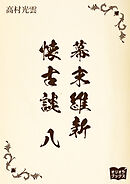 高村光雲
幕末維新
懐古談 八
オリオンブックス